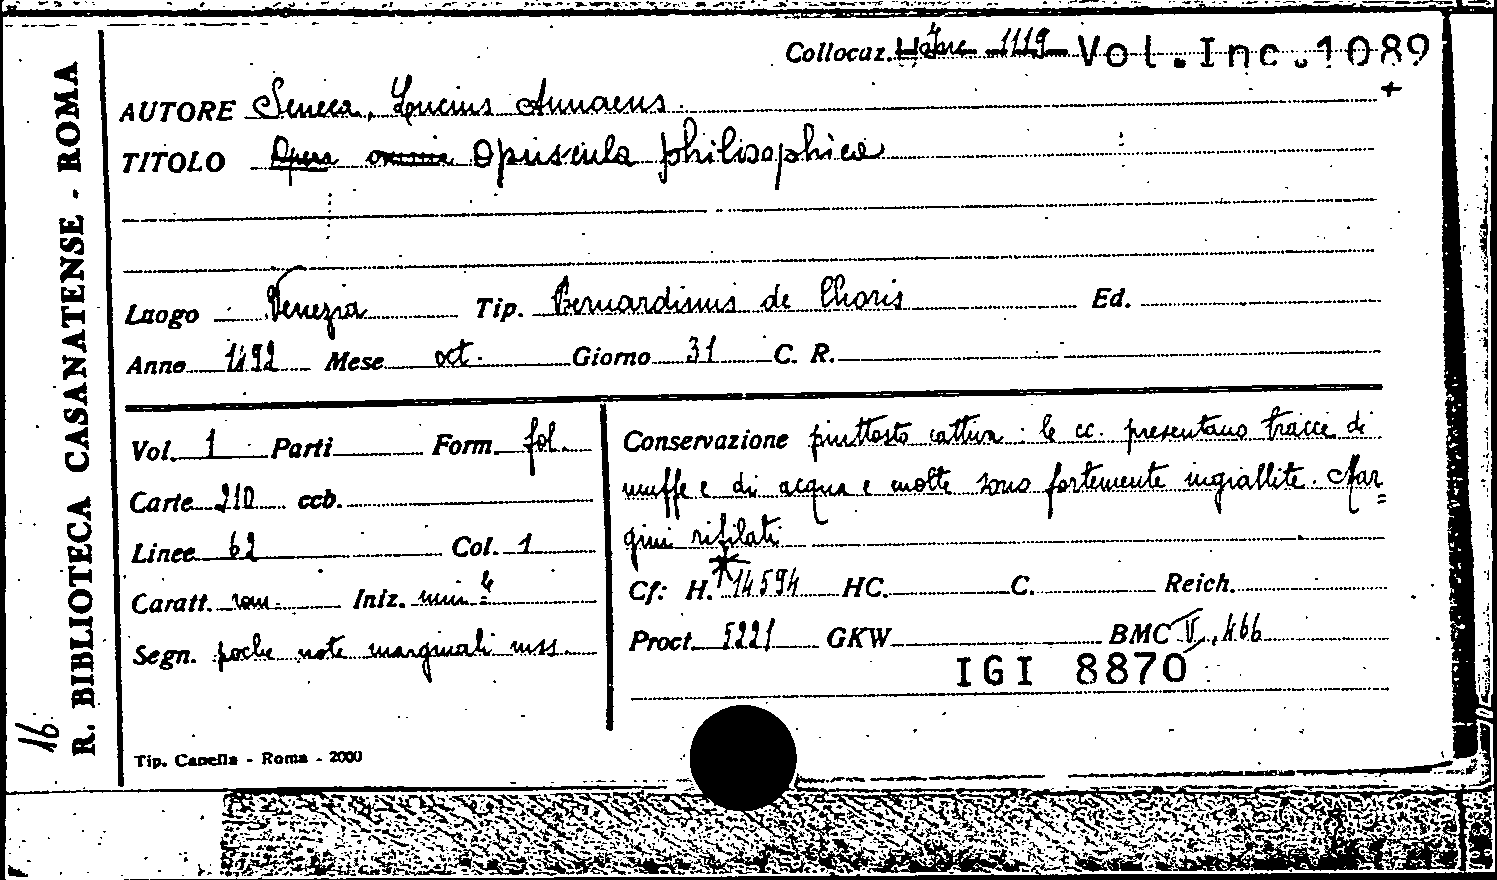 Collocaz. Vol. Inc. 1089
+
AUTORE Seneca, Lucius Annaeus.
TITOLO Opera omnia Opuscula philosophica
Luogo Venezia Tip. Bernardinus de Choris Ed.
Anno 1492 Mese ott. Giorno 31 C. R.
Vol. 1 Parti Form. fol.
Carte 210 ccb.
Linee 62 Col. 1
Caratt. rom. Iniz. min.
Segn. poche note marginali mss.
Conservazione piuttosto cattiva: le cc. presentano tracce di
muffe e di acqua e molte sono fortemente ingiallite. Mar=
gini rifilati
Cf: H. *14594 HC. C. Reich.
Proct. 5221 GKW BMC V, 466
IGI 8870
Tip. Canella - Roma - 2000
R. BIBLIOTECA CASANATENSE - ROMA
16